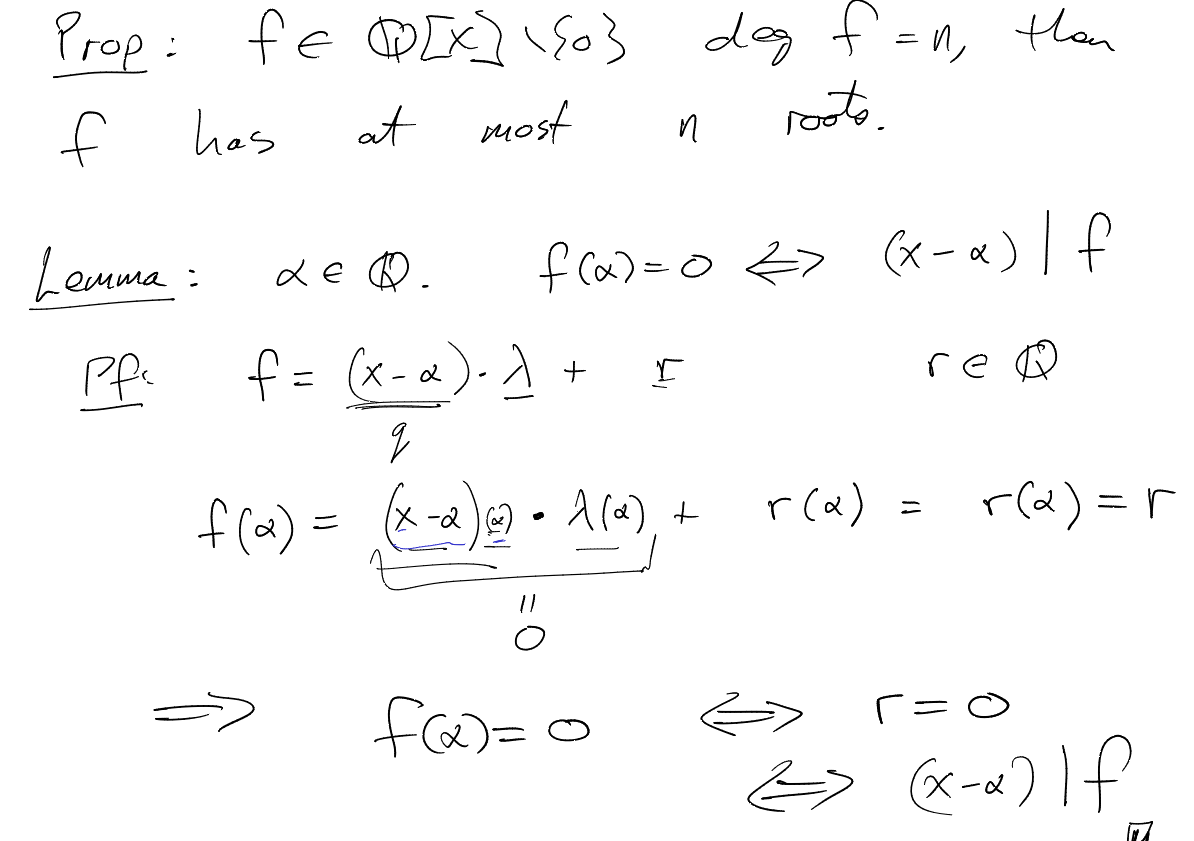 Prop: f ∈ ℚ[x] \ {0} deg f = n, then
f has at most n roots.
Lemma: α ∈ ℚ. f(α) = 0 ⇔ (x - α) | f
Pf: f = (x - α) · λ + r r ∈ ℚ
q
f(α) = (x - α)(α) · λ(α) + r(α) = r(α) = r
=
0
⇒ f(α) = 0 ⇔ r = 0
⇔ (x - α) | f